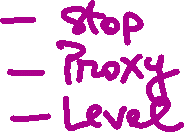 - Stop
- Proxy
- Level